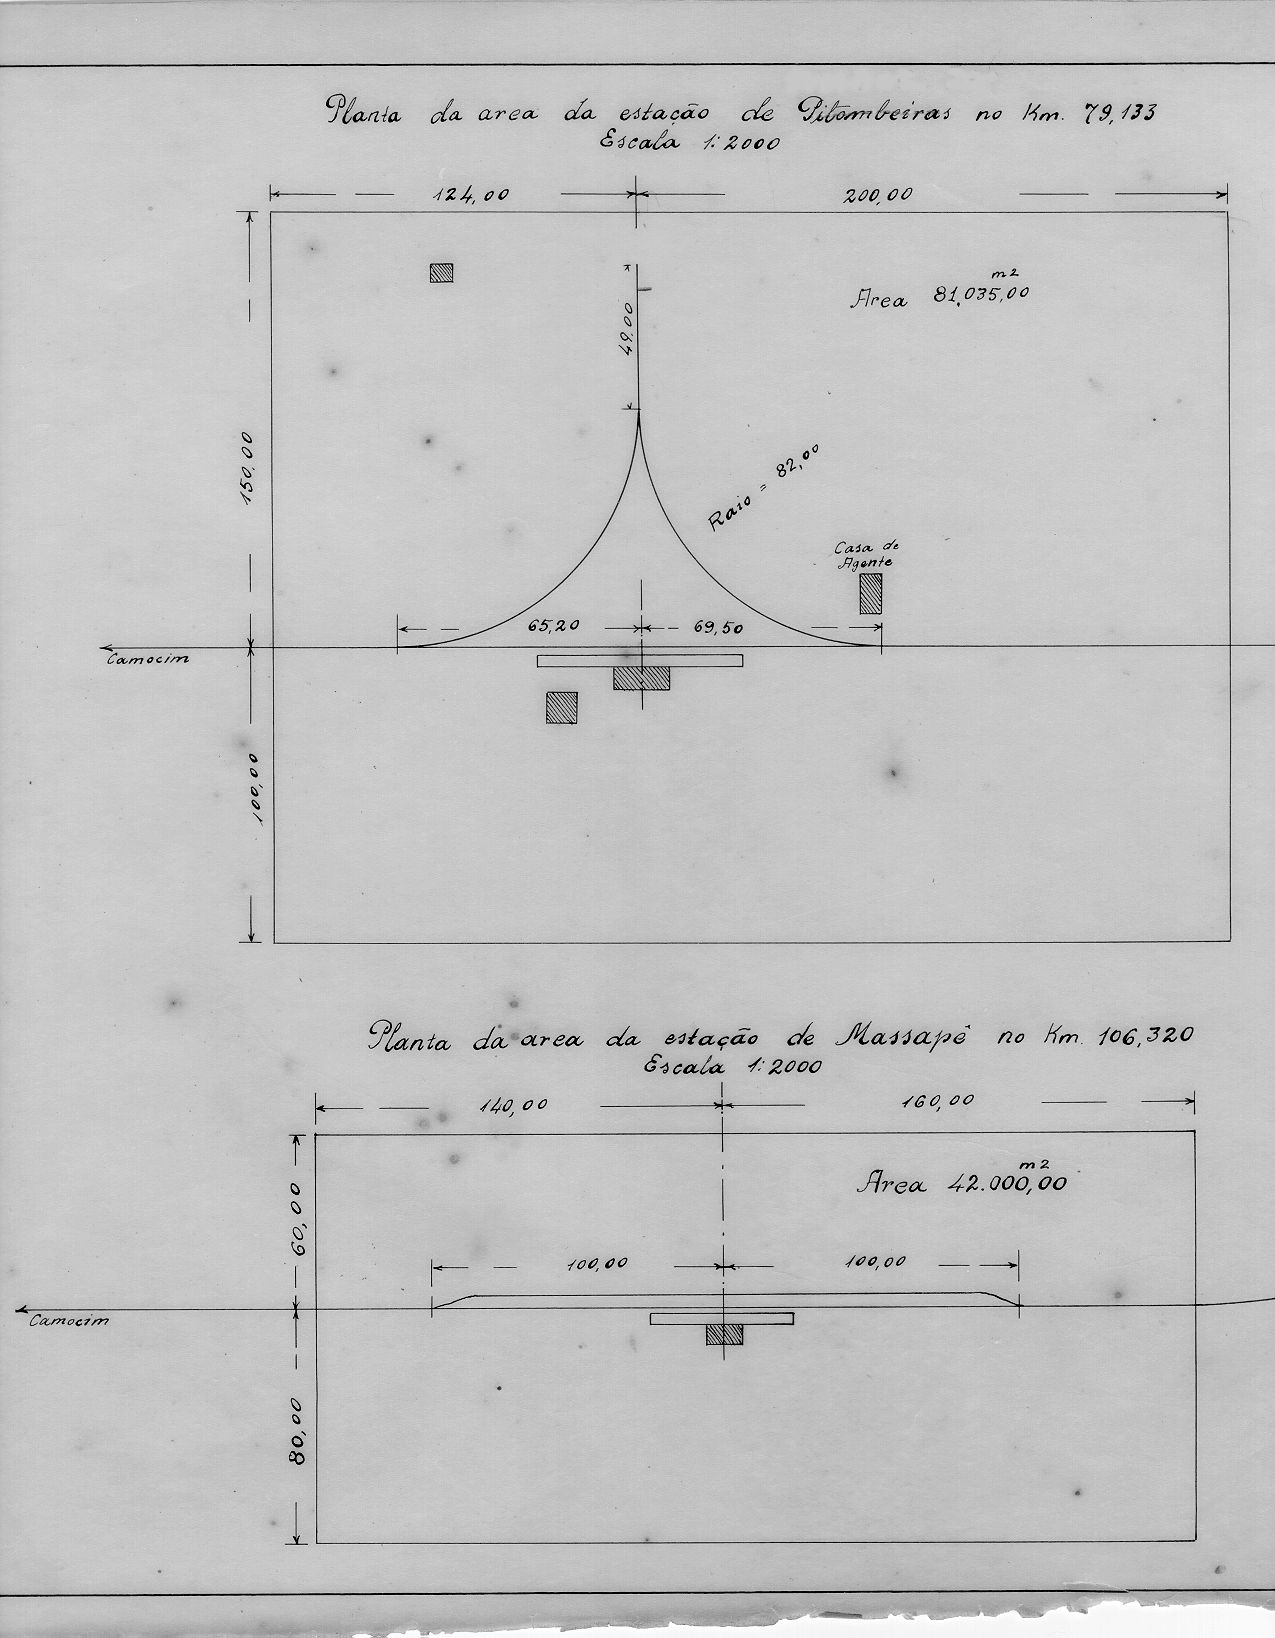 Planta da area da estação de Pitombeiras no Km. 79,133
Escala 1:2000
124,00 200,00
m2
Area 81.035,00
49,00
150,00
Raio = 82,00
Casa de
Agente
65,20 69,50
Camocim
100,00
Planta da area da estação de Massapê no Km. 106,320
Escala 1:2000
140,00 160,00
m2
Area 42.000,00
60,00
100,00 100,00
Camocim
80,00